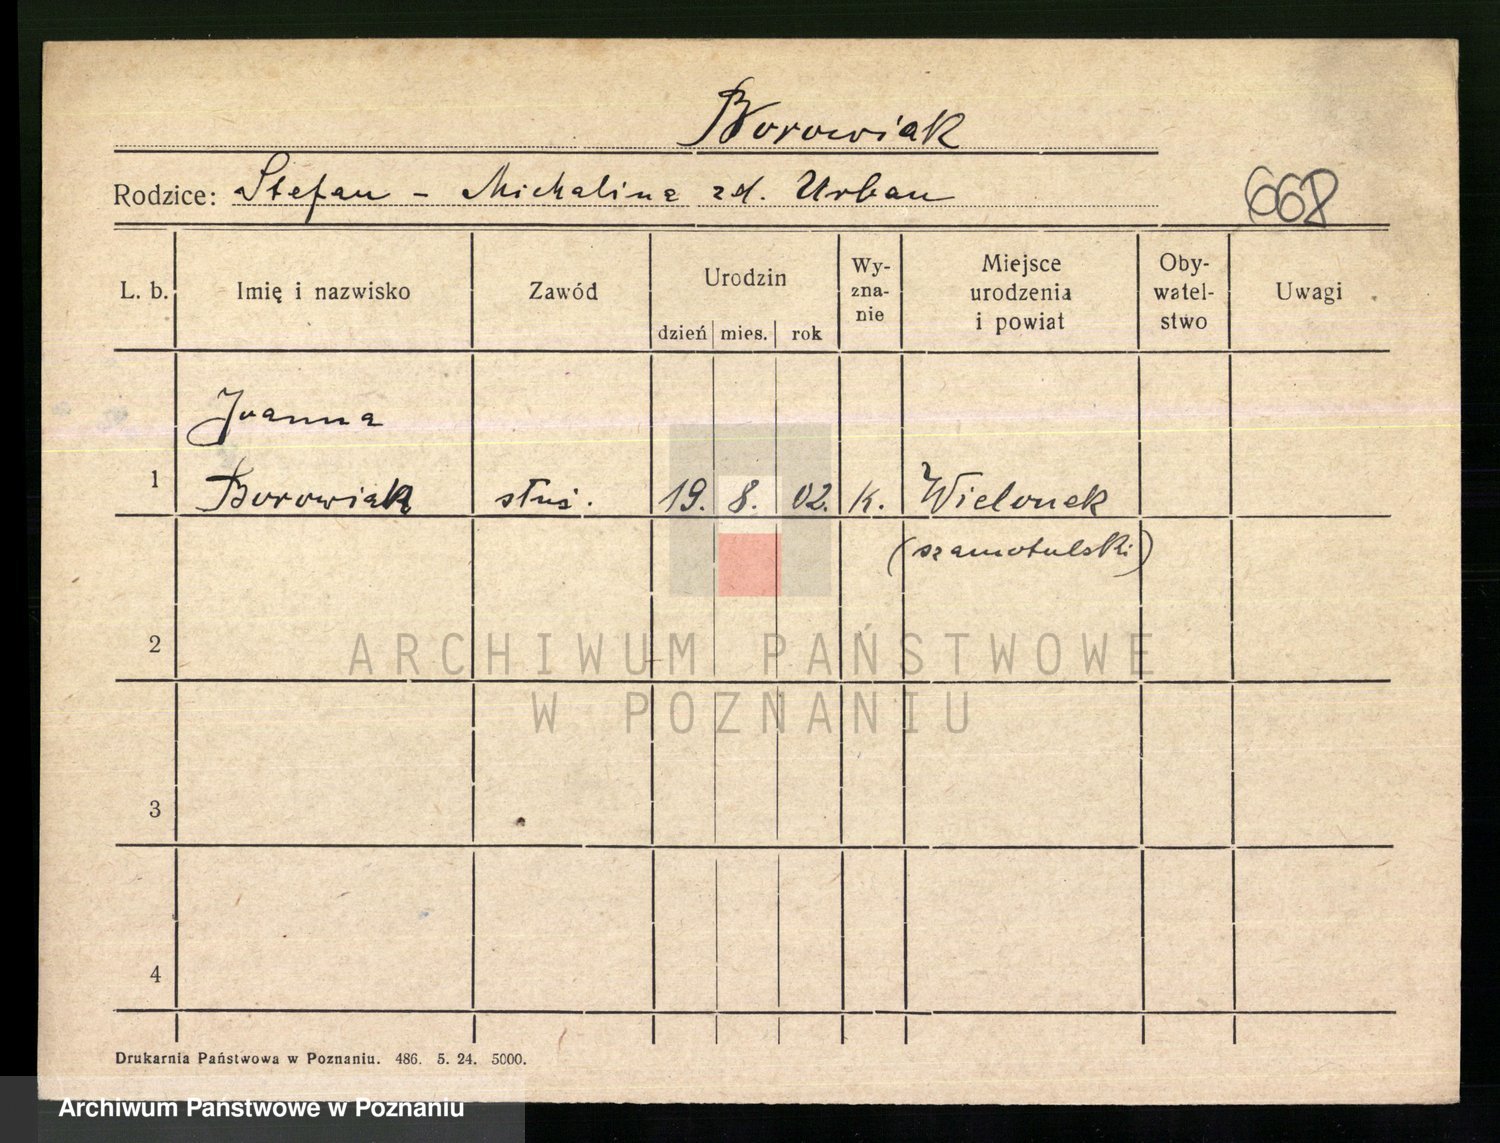 Borowiak
Rodzice: Stefan - Michalina zd. Urban
668
L. b. Imię i nazwisko Zawód Urodzin dzień mies. rok Wy- zna- nie Miejsce urodzenia i powiat Oby- watel- stwo Uwagi
Joanna
1 Borowiak służ. 19. 8. 02. k. Wielonek
(szamotulski)
2
ARCHIWUM PAŃSTWOWE
W POZNANIU
3
4
Drukarnia Państwowa w Poznaniu. 486. 5. 24. 5000.
Archiwum Państwowe w Poznaniu